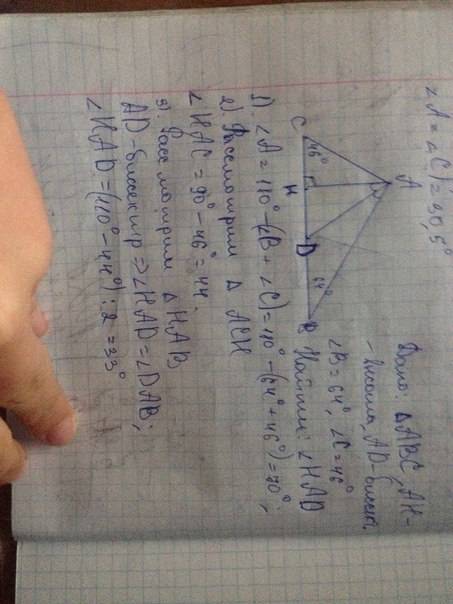 ∠A = ∠C) = 90,5°
Дано: △ABC, AH-
-высота, AD-биссект.
∠B = 64°, ∠C = 46°
Найти: ∠HAD
A
C
46°
H
D
64°
B
1). ∠A = 180° - (∠B + ∠C) = 180° - (64° + 46°) = 70°;
2). Рассмотрим △ ACH
∠HAC = 90° - 46° = 44.
3). Рассмотрим △ HAB
AD-биссектр ⇒ ∠HAD = ∠DAB;
∠HAD = (110° - 44°) : 2 = 33°